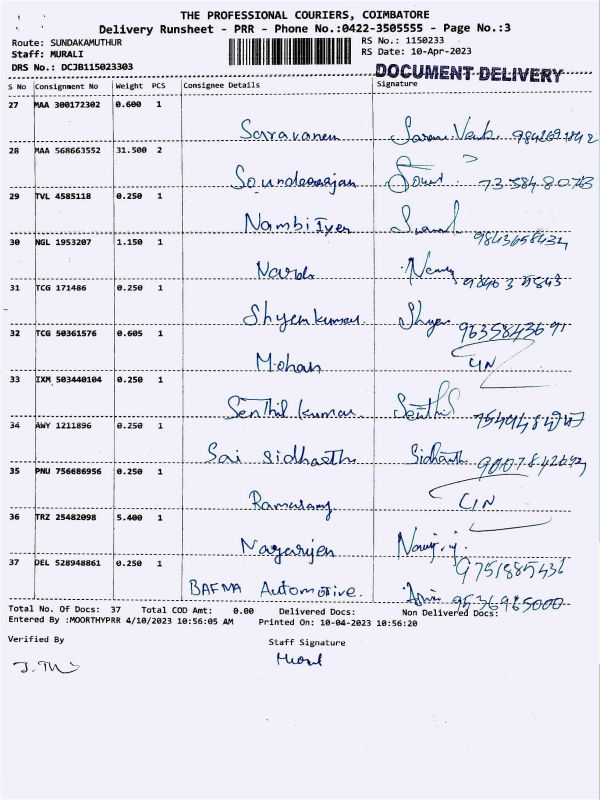 THE PROFESSIONAL COURIERS, COIMBATORE
Delivery Runsheet - PRR - Phone No.:0422-3505555 - Page No.:3
Route: SUNDAKAMUTHUR
RS No.: 1150233
Staff: MURALI
RS Date: 10-Apr-2023
DRS No.: DCJB115023303
DOCUMENT DELIVERY
S No Consignment No Weight PCS Consignee Details Signature
27 MAA 300172302 0.600 1
Saravanan
28 MAA 568663552 31.500 2
Soundararajan
29 TVL 4585118 0.250 1
Nambi Iyer
30 NGL 1953207 1.150 1
31 TCG 171486 0.250 1
Shyam kumar Shyam
32 TCG 50361576 0.605 1
Mohan
33 IXM 503440104 0.250 1
Senthil kumar Senthil
34 AWY 1211896 0.250 1
Sai Sidharth Sidharth
35 PNU 756686956 0.250 1
Ramasamy
36 TRZ 25482098 5.400 1
Nagarajen 9751885436
37 DEL 528948861 0.250 1
BAFNA Automotive. 9536965000
Total No. Of Docs: 37 Total COD Amt: 0.00 Delivered Docs: Non Delivered Docs:
Entered By :MOORTHYPRR 4/10/2023 10:56:05 AM Printed On: 10-04-2023 10:56:20
Verified By
Staff Signature